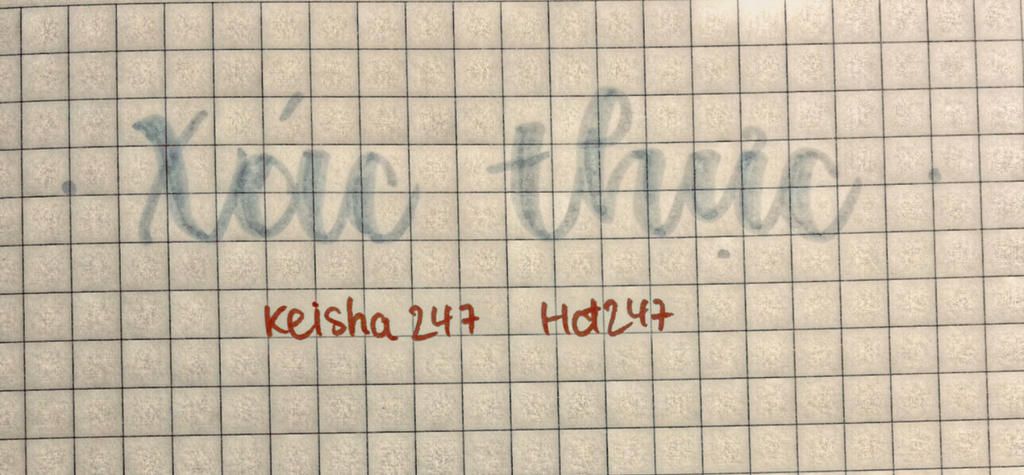 Xác thực
Keisha 247 Hot247